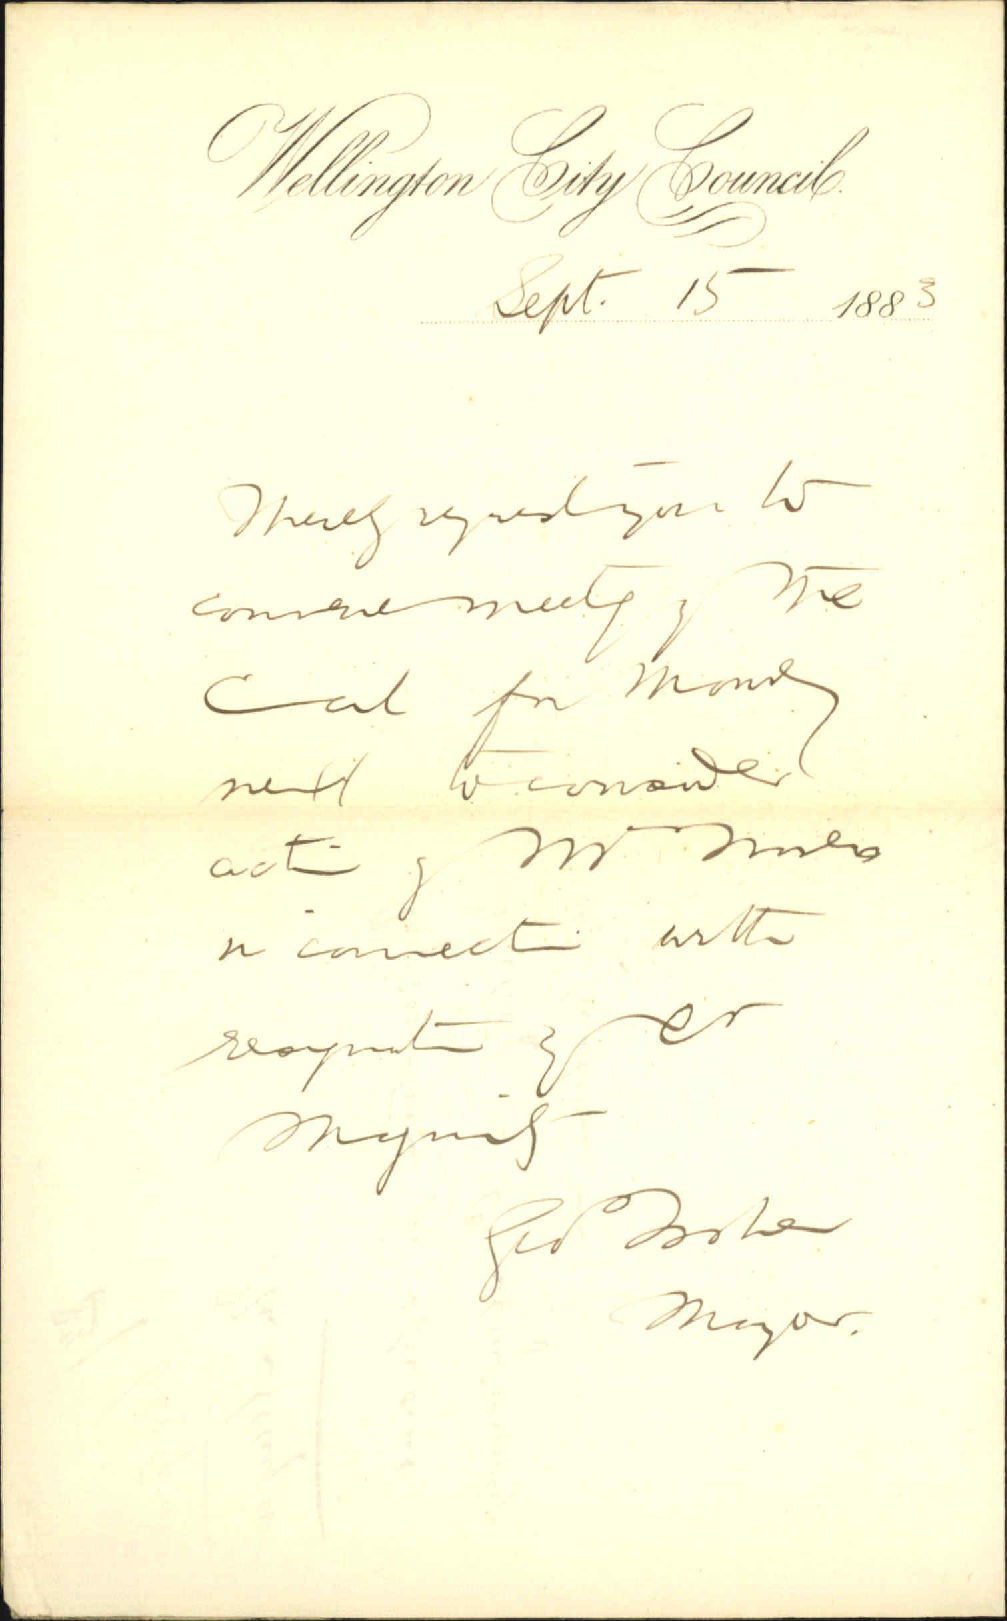 Wellington City Council.
Sept. 15 1883
I hereby request you to
convene meetg of the
Council for Monday
next to consider
action of Mr
in connection with
resignation of Cr
Geo Fisher
Mayor.